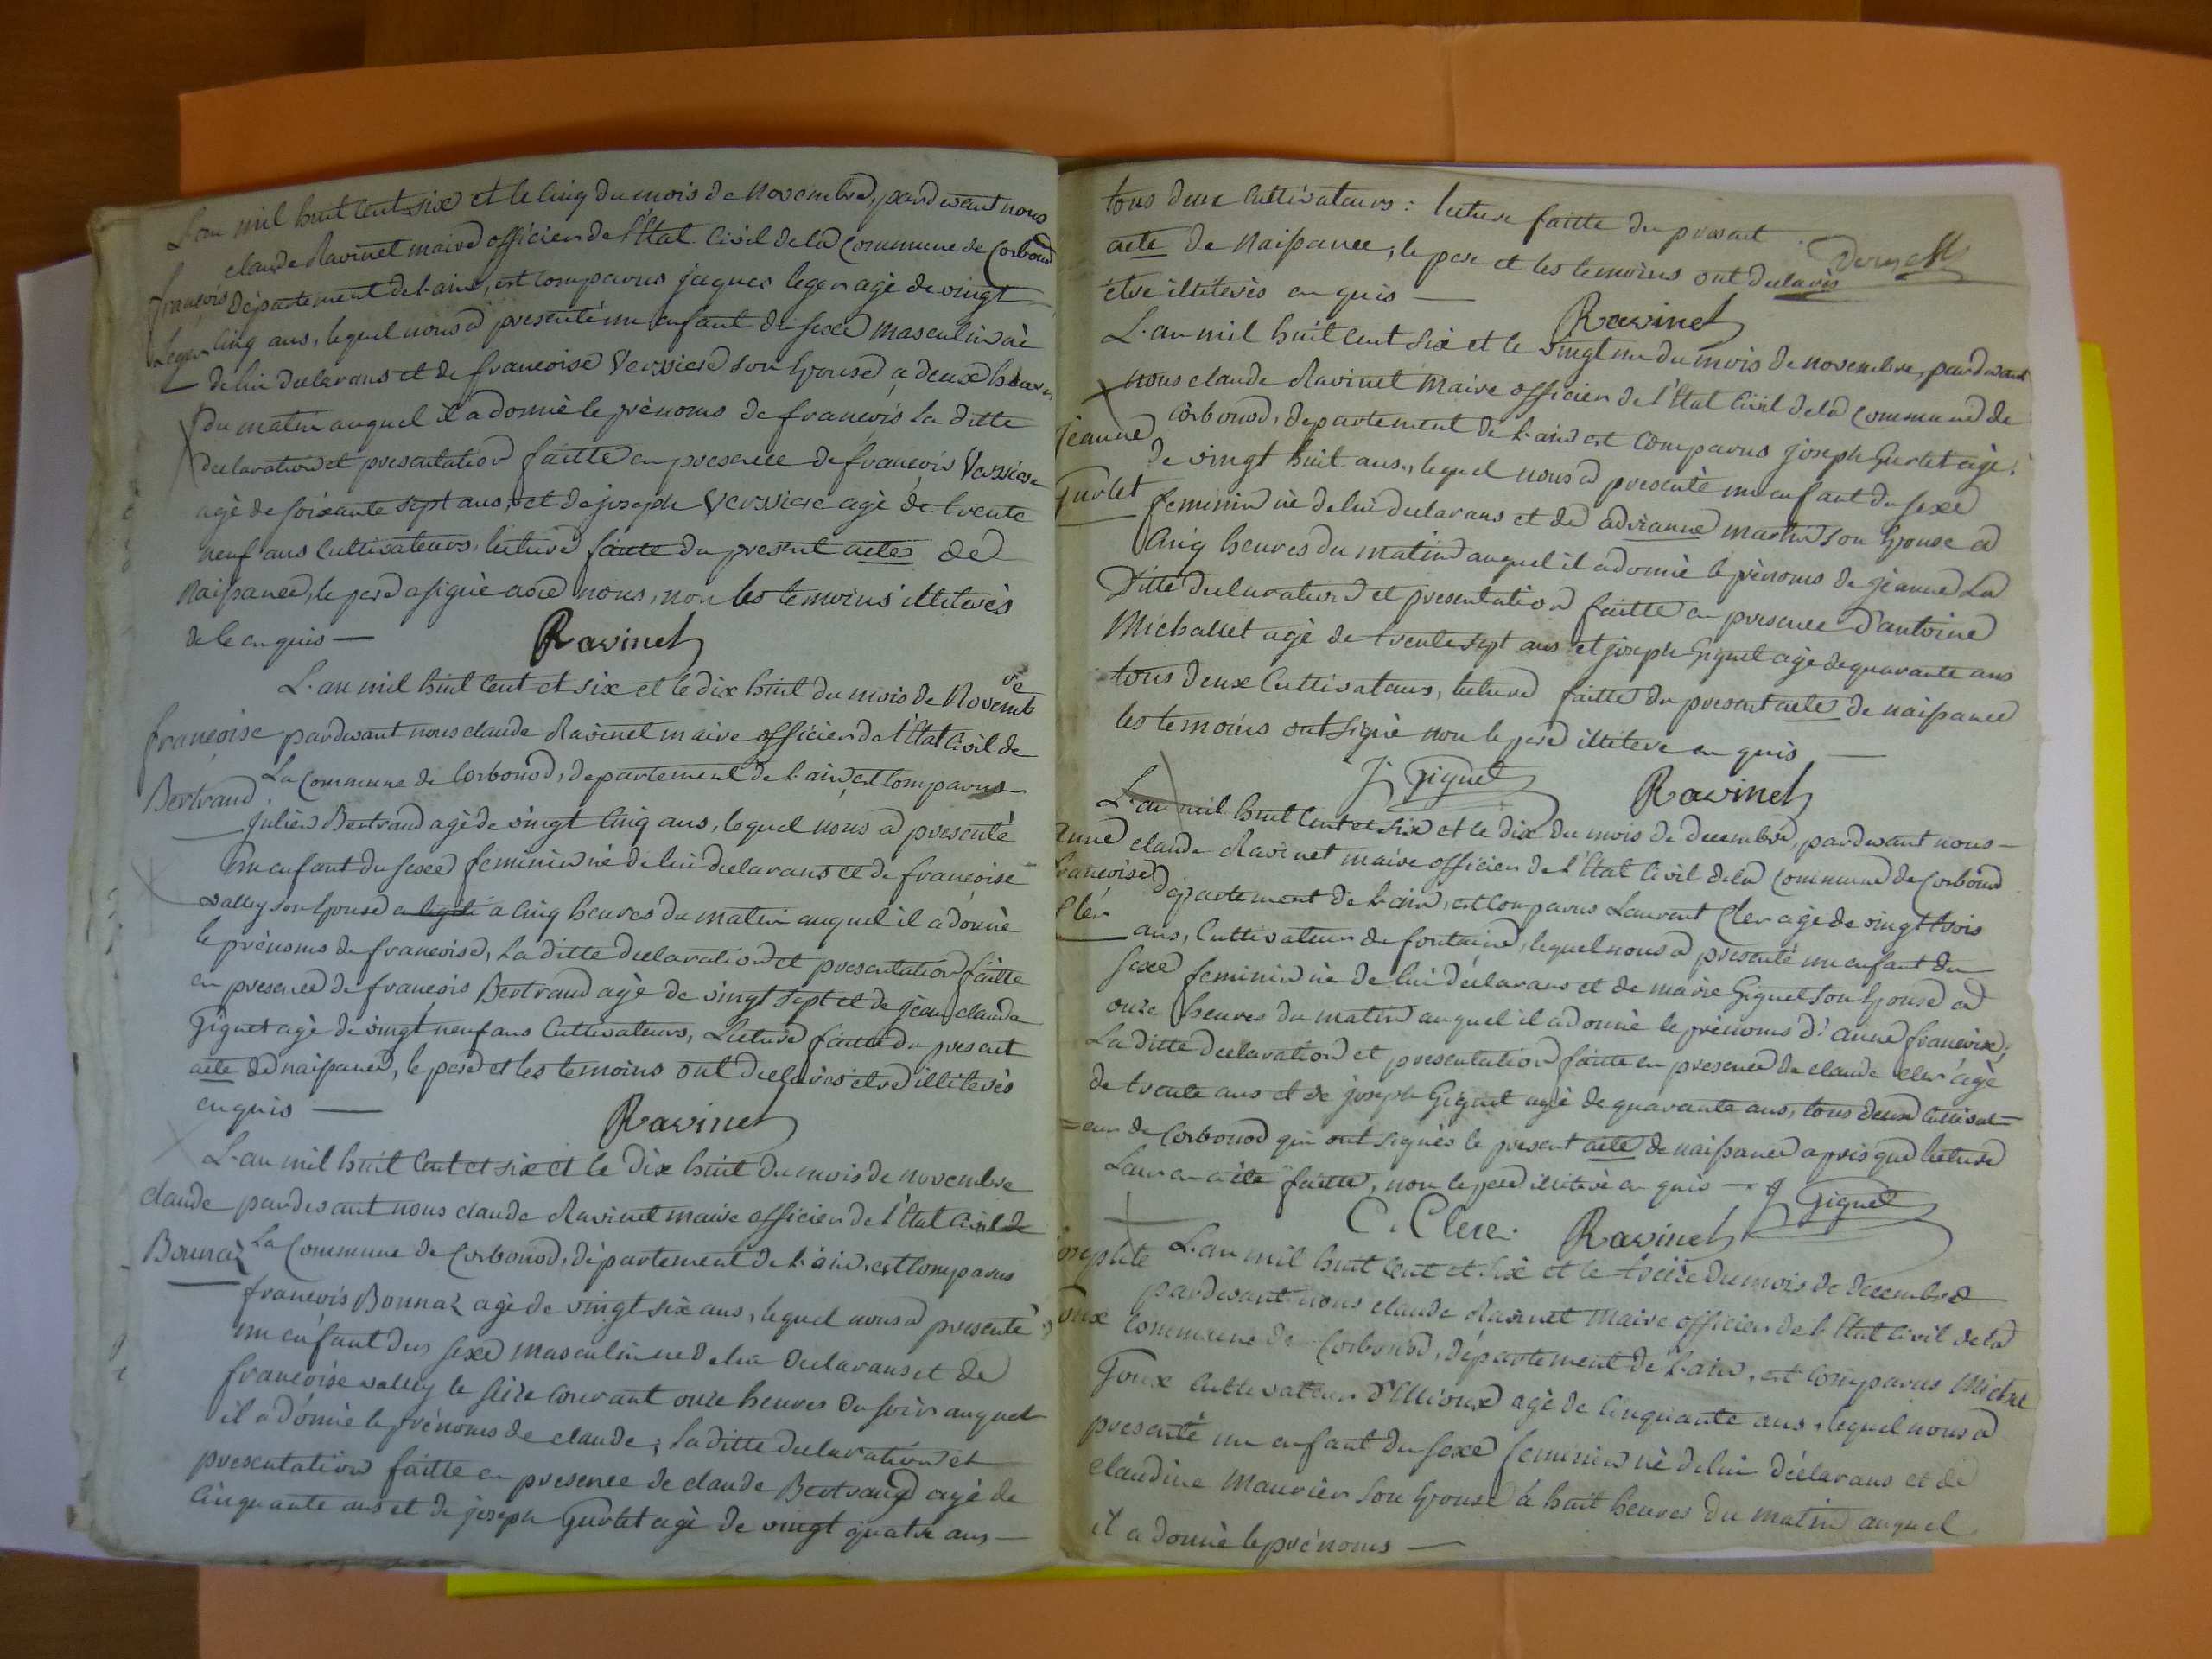 L'an mil huit cent six et le cinq du mois de Novembre, pardevant nous
claude Ravinet maire officier de l'Etat Civil de la Commune de Corbonod
françois département de l'ain, est Comparus jaques leger agè de vingt
Leger cinq ans, lequel nous a presenté un enfant du sexe masculin nè
de lui declarans et de francoise Verssiere son Epouse a deux heures
du matin auquel il a donnè le prénoms de francois la ditte
declaration et presentation faitte en presence de francois Verssiere
agè de soixante sept ans, et de joseph Verssiere agè de trente
neuf ans Cultivateurs, lecture faitte du present actes de
Naissance, le pere a signè avec nous, non les temoins illiterès
de le enquis —
Ravinet
L'an mil huit cent et six et le dix huit du mois de Novembre
françoise pardevant nous claude Ravinet maire officier de l'Etat Civil de
Bertrand La Commune de Corbonod, departement de l'ain, est Comparus
julien Bertrand agè de vingt cinq ans, lequel nous a presenté
un enfant du sexe feminin nè de lui declarans et de francoise
valley son Epouse a cinq heures du matin auquel il a donnè
le prénoms de francoise, La ditte declaration et presentation faitte
en presence de francois Bertrand agè de vingt sept et de jean claude
Giguet agè de vingt neuf ans Cultivateurs, Lecture faitte du present
acte de naissance, le pere et les temoins ont declarès etre illiterès
enquis —
Ravinet
L'an mil huit cent et six et le dix huit du mois de novembre
claude pardevant nous claude Ravinet maire officier de l'Etat Civil de
Bonnaz La Commune de Corbonod, département de l'ain, est Comparus
francois Bonnaz agè de vingt six ans, lequel nous a presentè
un enfant du sexe masculin ne de lui declarans et de
françoise valley le seize Courant onze heures du soir auquel
il a donnè le prénoms de claude; la ditte declaration et
presentation faitte en presence de claude Bertrand agé de
Cinquante ans et de joseph Gurlet agè de vingt quatre ans —
tous deux Cultivateurs: lecture faitte du present
acte de Naissance, le pere et les temoins ont declarès
etre illiterès enquis —
Ravinet
L'an mil huit cent six et le vingt un du mois de novembre, pardevant
nous claude Ravinet maire officier de l'Etat Civil de la Commune de
jeanne Corbonod, departement de l'ain est Comparus joseph Gurlet agè
de vingt huit ans, lequel nous a presentè un enfant du sexe
Gurlet feminin nè de lui declarans et de adrianne martin son Epouse a
Cinq heures du matin auquel il a donnè le prènoms de jeanne La
Ditte declaration et presentation faitte en presence d'antoine
Michallet agè de trente sept ans et joseph Giguet agè de quarante ans
tous deux Cultivateurs, lecture faitte du present actes de naissance
les temoins ont signè non le pere illitere enquis —
J. Giguet
Ravinet
L'an mil huit cent et six et le dix du mois de decembre, pardevant nous —
anne claude Ravinet maire officier de l'Etat Civil de la Commune de Corbonod
francoise departement de l'ain, est Comparus Laurent Cler agè de vingt trois
Clér ans, Cultivateur de fontaine, lequel nous a presenté un enfant du
sexe feminin nè de lui déclarans et de marie Giguet son Epouse a
onze heures du matin auquel il a donnè le prénoms d'anne francoise;
La ditte declaration et presentation faitte en presence de claude cler agè
de trente ans et de joseph Giguet agè de quarante ans, tous deux Cultivat=
=eur de Corbonod qui ont signès le present acte de naissance apris que lecture
Leur en a été faitte, non le pere illiterè enquis — J Giguet
C. Clere. Ravinet
josephte L'an mil huit cent et six et le treize du mois de decembre
pardevant nous claude Ravinet Maire officier de l'Etat Civil de la
Goux Commune de Corbonod, département de l'ain, est Comparus Michel
Goux Cultivateur agè de Cinquante ans, lequel nous a
presentè un enfant du sexe feminin nè de lui déclarans et de
claudine Maurier son Epouse à huit heures du matin auquel
il a donnè le prénoms —